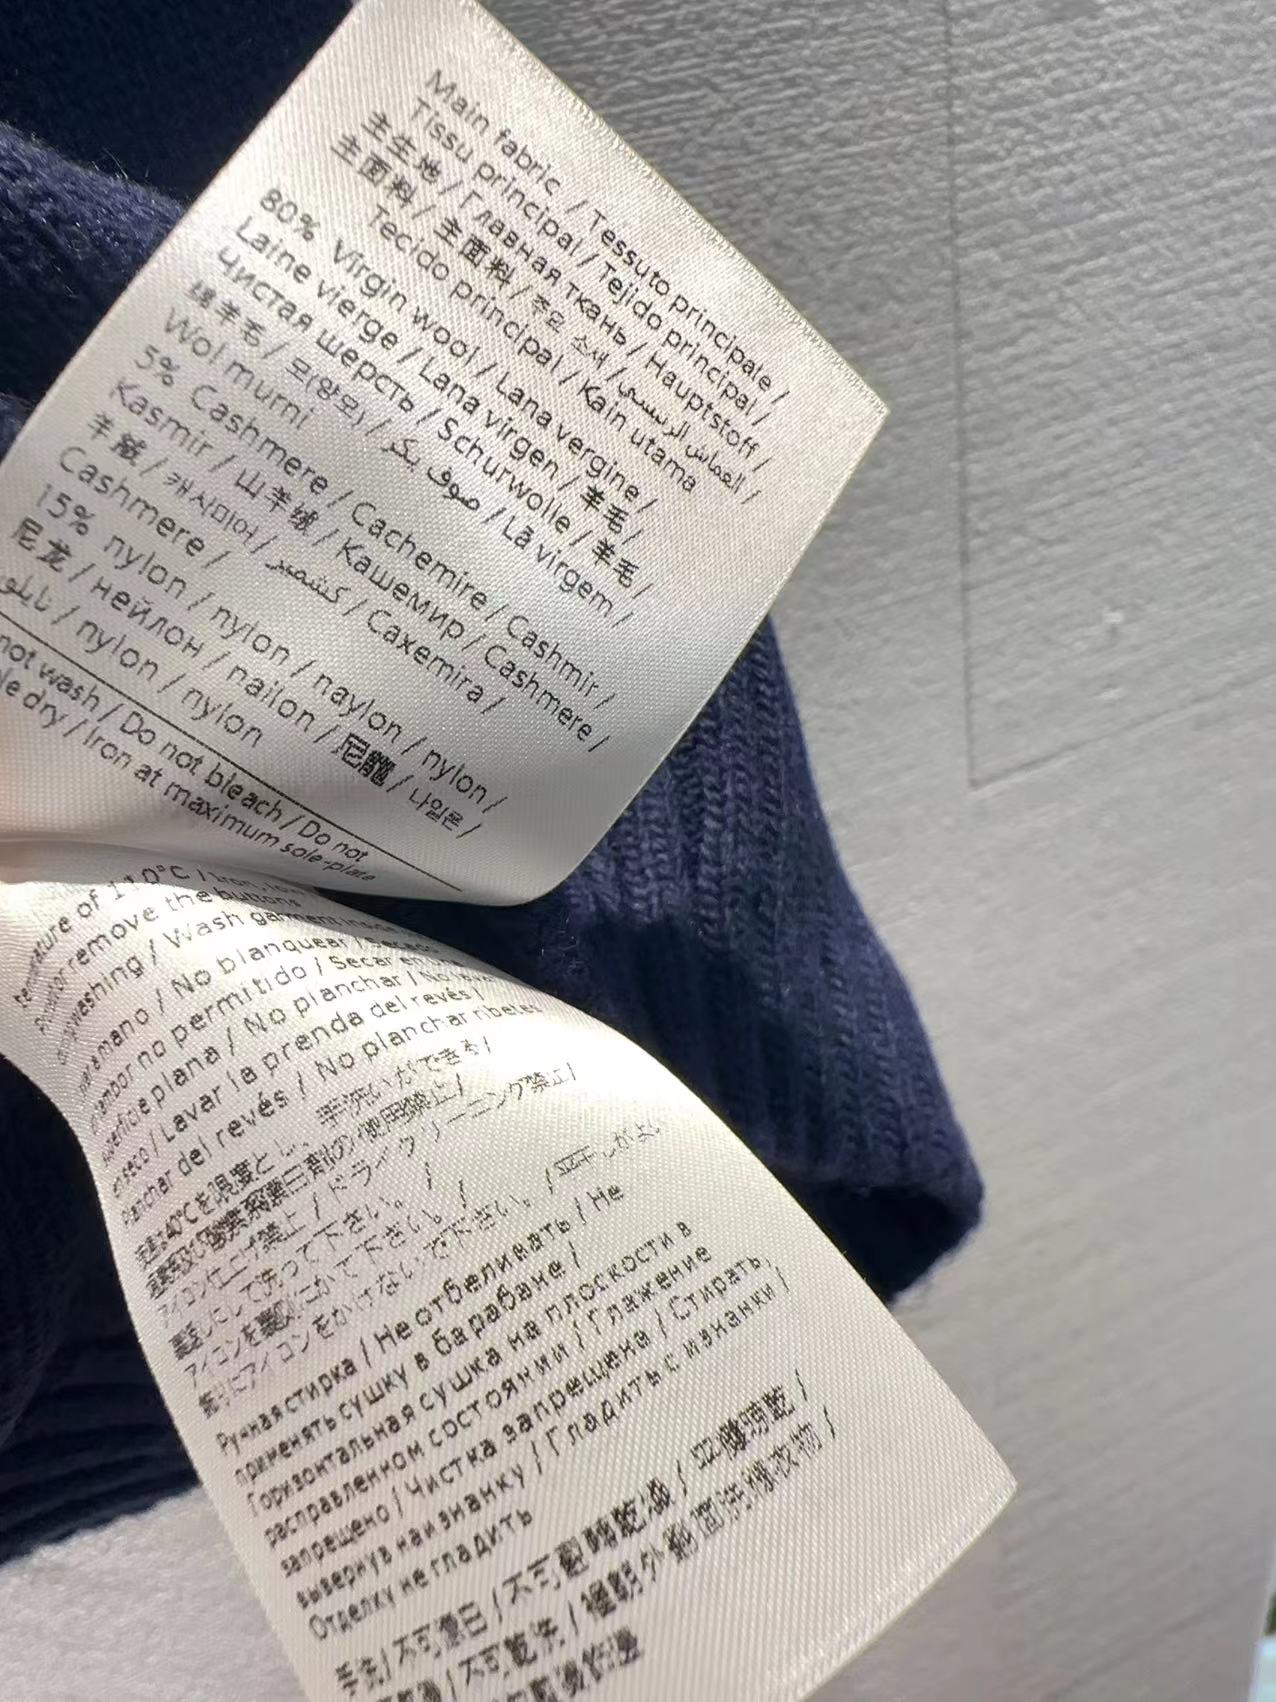 Main fabric / Tessuto principale /
Tissu principal / Tejido principal /
主生地 / Главная ткань / Hauptstoff /
主面料 / 主面料 / 주요 소재 / القماش الرئيسي /
Tecido principal / Kain utama
80% Virgin wool / Lana vergine /
Laine vierge / Lana virgen / 羊毛 /
Чистая шерсть / Schurwolle / 羊毛 /
绵羊毛 / 모(양모) / صوف بكر / Lã virgem /
Wol murni
5% Cashmere / Cachemire / Cashmir /
Kasmir / 山羊绒 / Кашемир / Cashmere /
羊绒 / 캐시미어 / كشمير / Caxemira /
Cashmere /
15% nylon / nylon / naylon / nylon /
尼龙 / нейлон / nailon / 尼龍 / 나일론 /
نايلون / nylon / nylon
not wash / Do not bleach / Do not
dry / Iron at maximum sole-plate
of 110°C / Iron
remove the buttons
washing / Wash garment inside
mano / No blanquear / Secado
no permitido / Secar en
plana / No planchar / No
/ Lavar la prenda del revés /
planchar del revés / No planchar ribetes
40℃を限度とし、手洗いができる /
の使用禁止 /
禁止 / ドライクリーニング禁止 /
して洗って下さい。 /
かけて下さい。 /
アイロンをかけないで下さい。 / 平干しがよい
Ручная стирка / Не отбеливать / Не
применять сушку в барабане /
Горизонтальная сушка на плоскости в
расправленном состоянии / Глажение
запрещено / Чистка запрещена / Стирать,
вывернув наизнанку / Гладить с изнанки /
Отделку не гладить
手洗 / 不可漂白 / 不可翻轉乾燥 / 平攤晾乾 /
/ 不可乾洗 / 翻面洗滌衣物 /